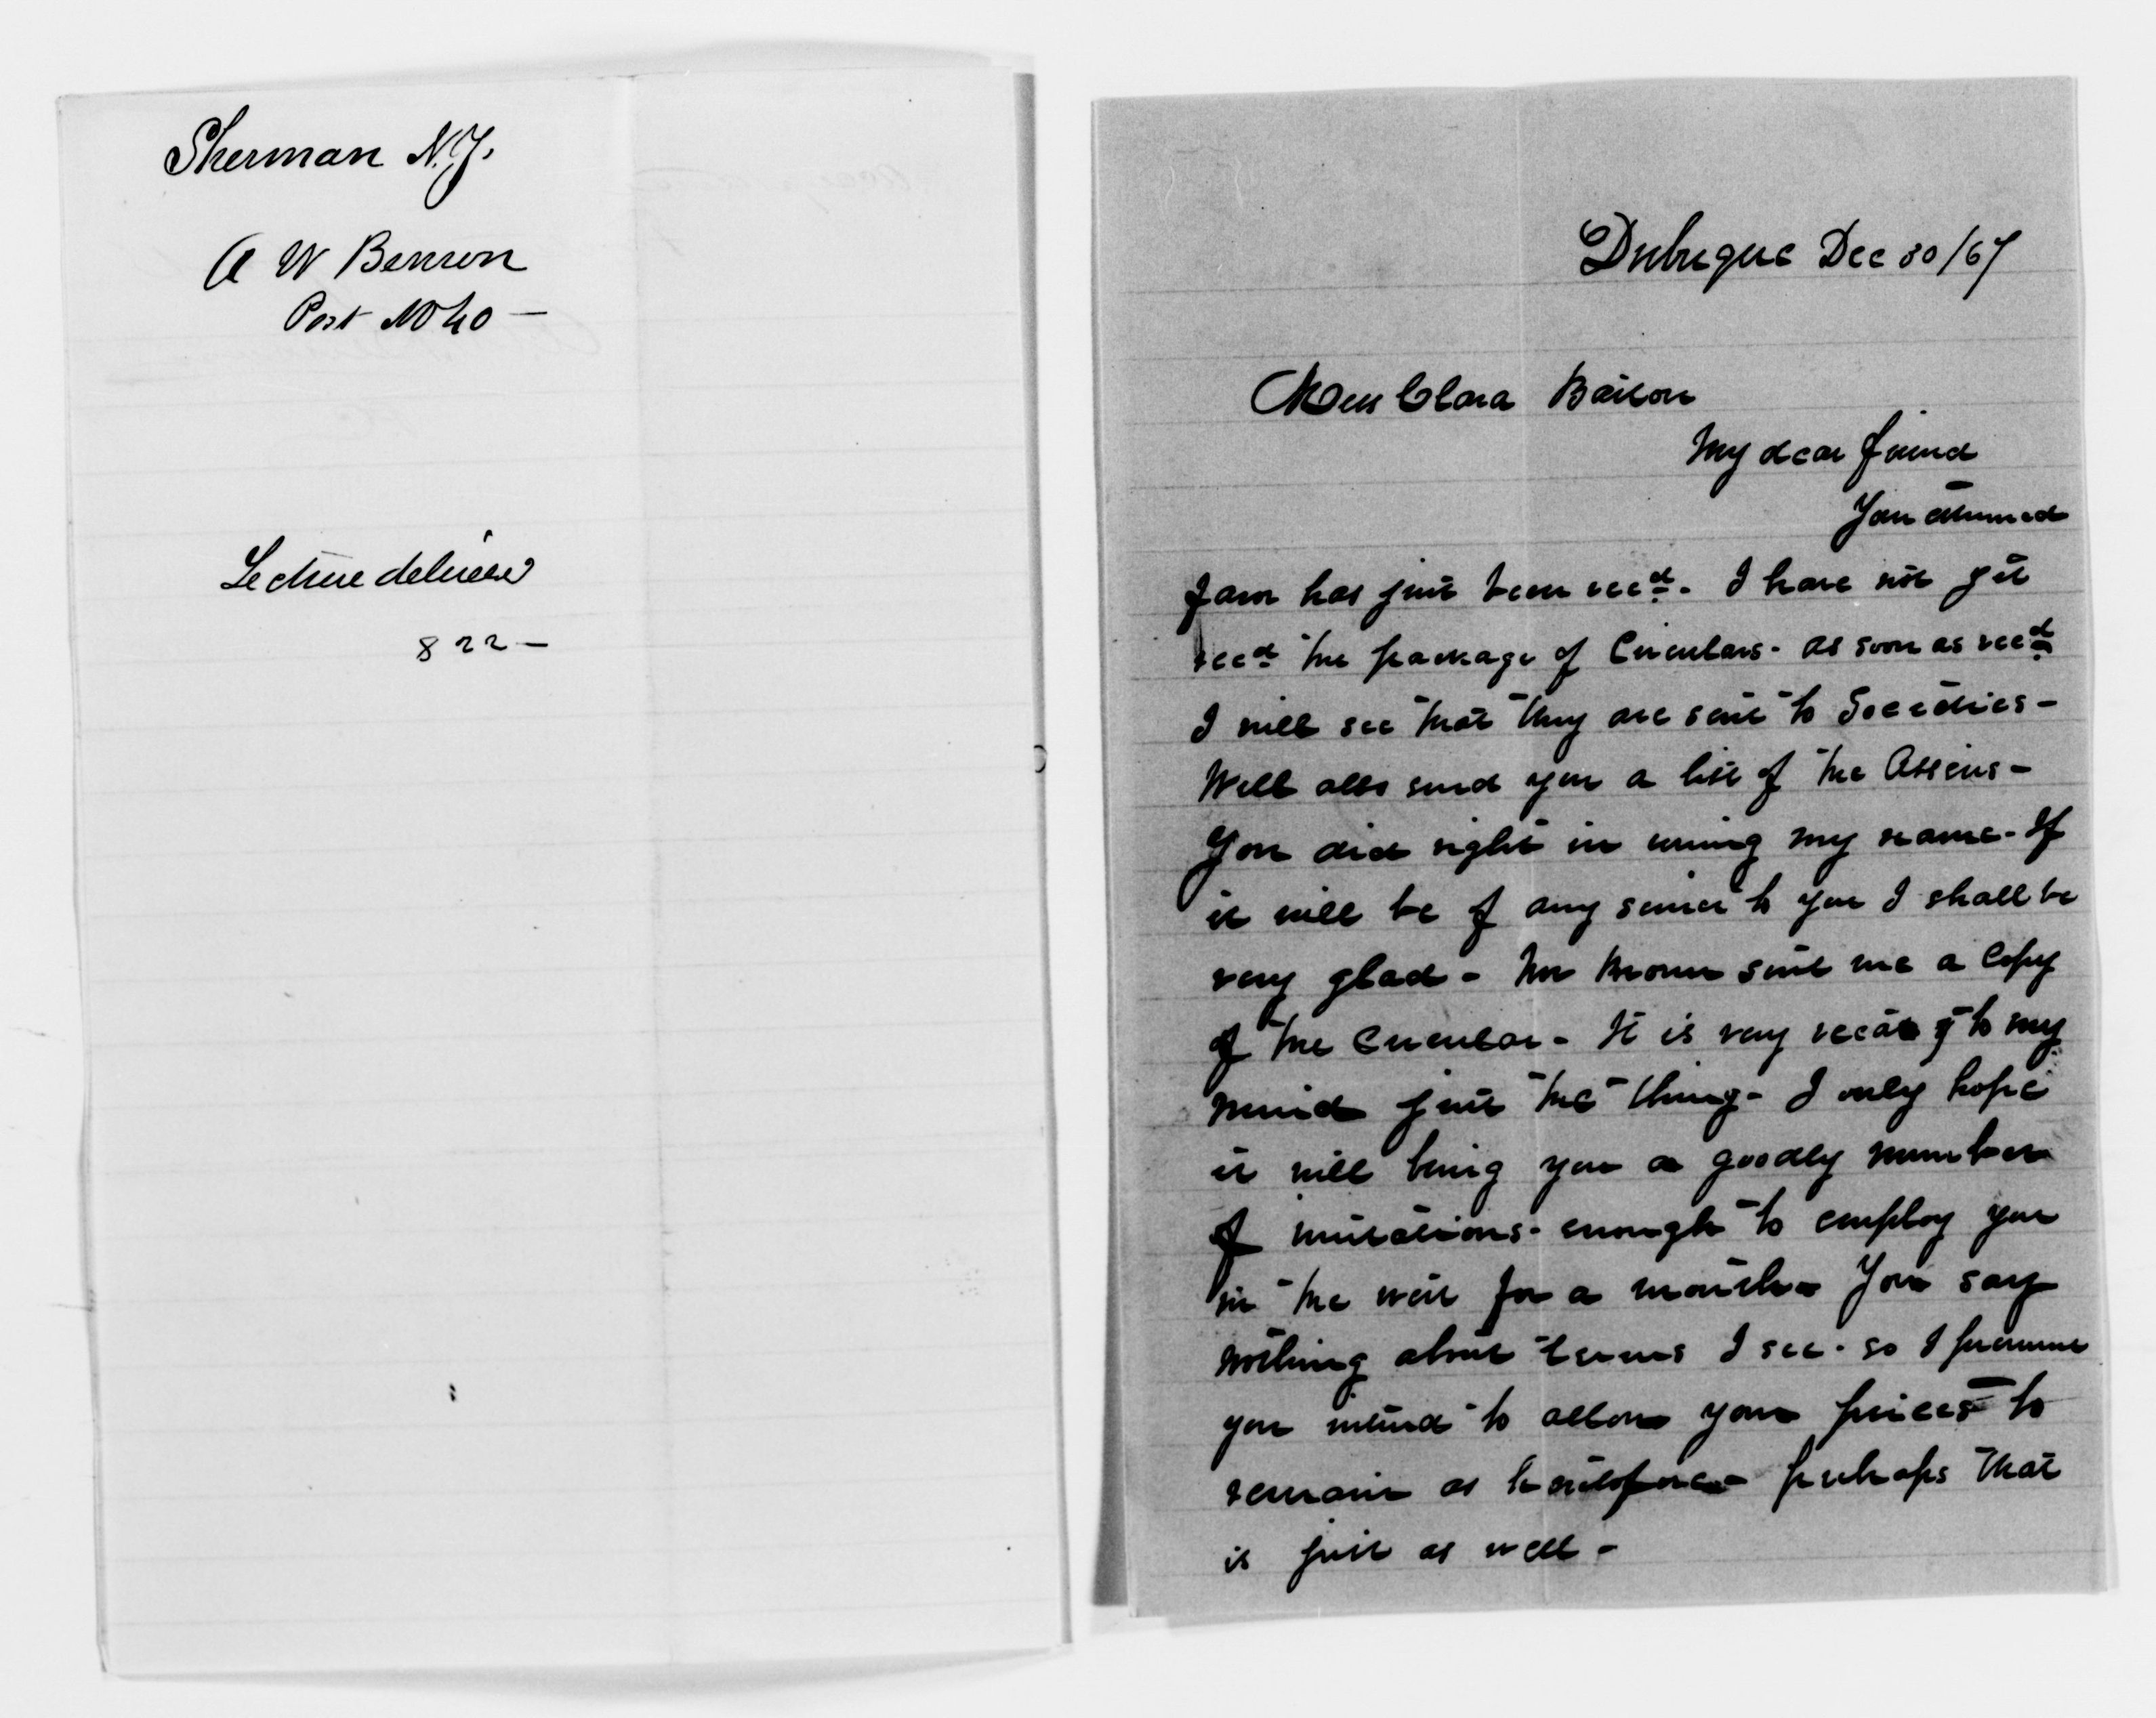 Sherman N.Y.
A W Benson
Post No 40 —
Lecture delivered
822 —
Dubuque Dec 30/67
Miss Clara Barton
My dear friend
Your esteemed
favor has just been recd. I have not yet
recd the package of Circulars. as soon as recd
I will see that they are sent to Societies —
Will also send you a list of the Assens —
You did right in using my name. If
it will be of any service to you I shall be
very glad — Mr Brown sent me a Copy
of the Circular — It is very neat & to my
mind just the thing — I only hope
it will bring you a goodly number
of invitations — enough to employ you
in the west for a month — You say
nothing about terms I see. so I presume
you intend to allow your prices to
remain as heretofore — perhaps that
is just as well —